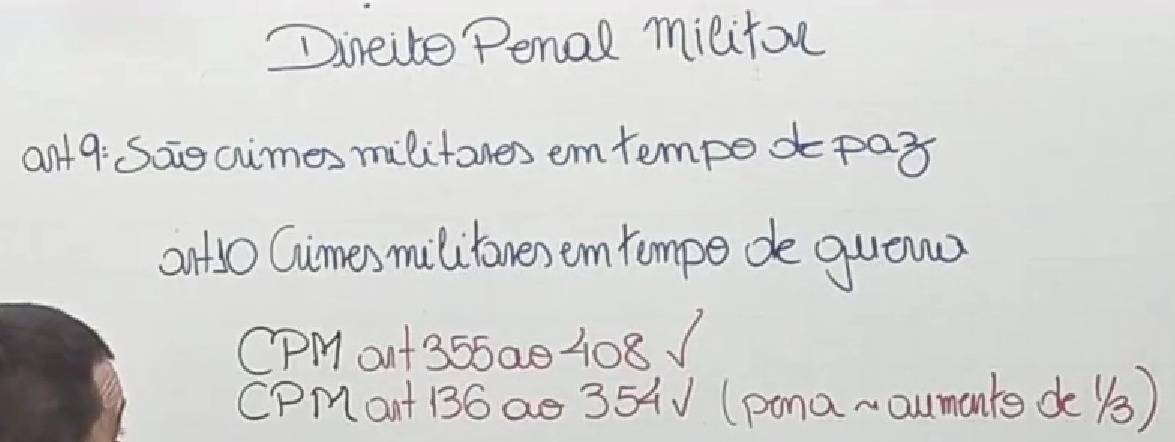 Direito Penal Militar
art 9: São crimes militares em tempo de paz
art 10 Crimes militares em tempo de guerra
CPM art 355 ao 408 √
CPM art 136 ao 354 √ (pena ~ aumento de 1/3)